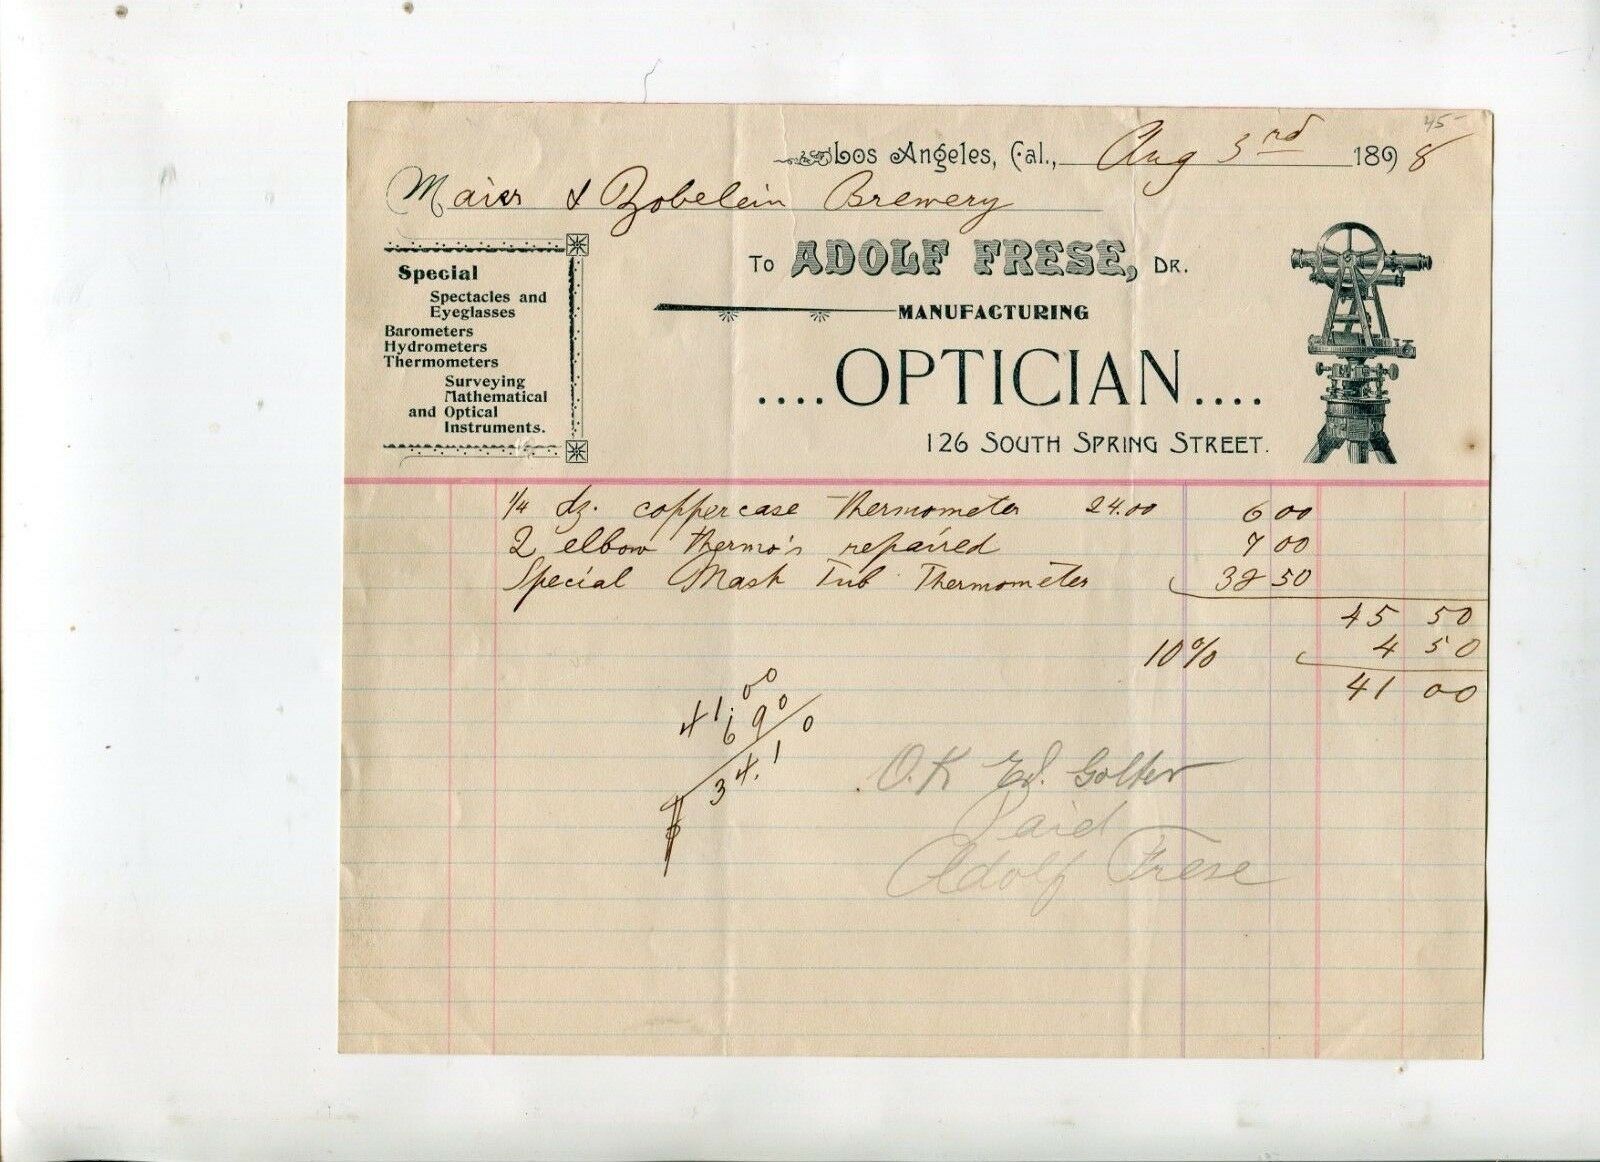 45-
Los Angeles, Cal., Aug 3rd 1898
Maier & Zobelein Brewery
To ADOLF FRESE, DR.
MANUFACTURING
....OPTICIAN....
126 SOUTH SPRING STREET.
Special
Spectacles and
Eyeglasses
Barometers
Hydrometers
Thermometers
Surveying
Mathematical
and Optical
Instruments.
1/4 dz. coppercase Thermometer 24.00 6 00
2 elbow thermo's repaired 7 00
Special Mash Tub Thermometer 32 50
45 50
10% 4 50
41 00
41.00
6 90
$ 34.10
O.K Ed. Golter
Paid
Adolf Frese